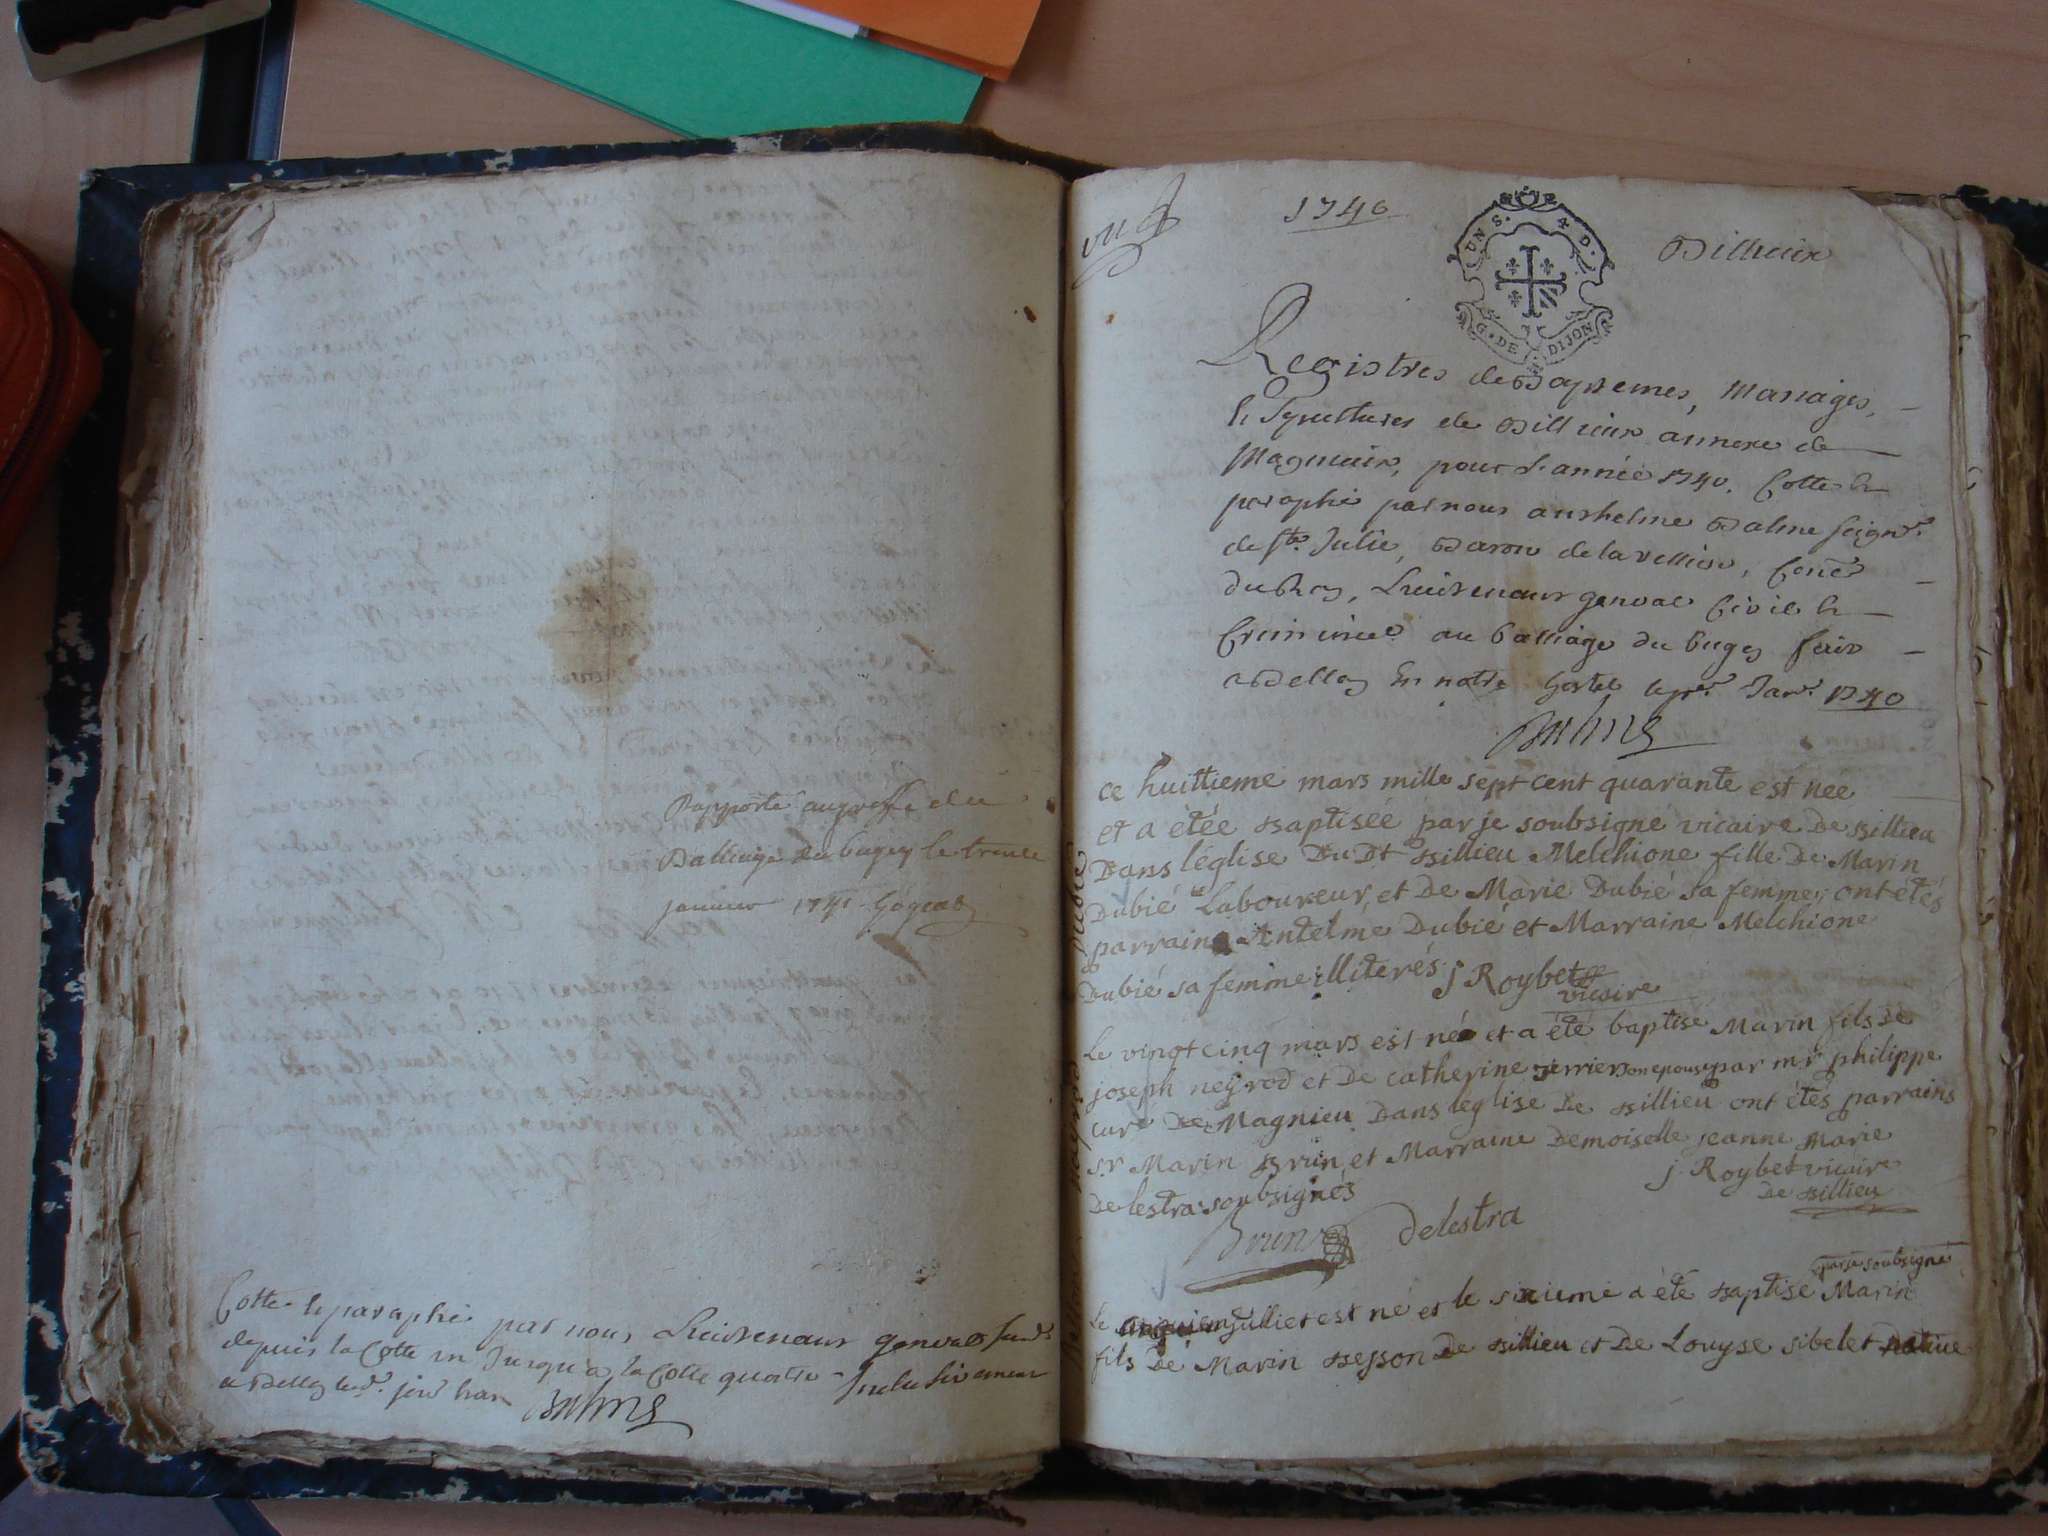 Rapporté au greffe du
Balliage du bugey le trente
janvier 1741
Cotté & paraphé par nous Lieutenant general susd.
depuis la Cotte un Jusqu'a la Cotte quatre Inclusivement
a Belley led. jour & an
Balme
1740
UN S. 4 D.
G. DE DIJON
Billieux
Registres de Baptemes, Mariages,
& Sepultures de Billieux annexe de
Magnieux, pour L'année 1740. Cotté &
paraphé par nous anthelme Balme seignr.
de ste. Julie, Baron de la velliere, Coner
du Roy, Lieutenant general Civil &
Criminel au balliage du bugey fait
a Belley En notre hostel le pr. Janr. 1740
Balme
ce huittieme mars mille sept cent quarante est née
et a étée Baptisée par je soubsigné vicaire de Billieu
Dans l'église Du Dt Billieu Melchione fille De Marin
Dubié Laboureur, et De Marie Dubié sa femme; ont étés
parrain Antelme Dubié et Marraine Melchione
Dubié sa femme illiterés j Roybet
vicaire
Le vingt cinq mars est né et a été baptisé Marin fils de
joseph neyrod et De catherine perrier son epouse par mr philippe
curé De Magnieu Dans l'eglise De Billieu ont étés parrains
sr Marin Brun, et Marraine Demoiselle jeanne Marie
De lestra soubsignés
j. Roybet vicaire
De Billieu
Brun
Delestra
par je soubsigné
Le juillet est né et le sixieme a été Baptisé Marin
fils De Marin Besson De Billieu et De Louyse sibelet native